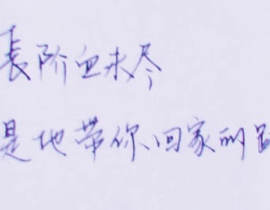 長阶血未尽
是地带你回家的路